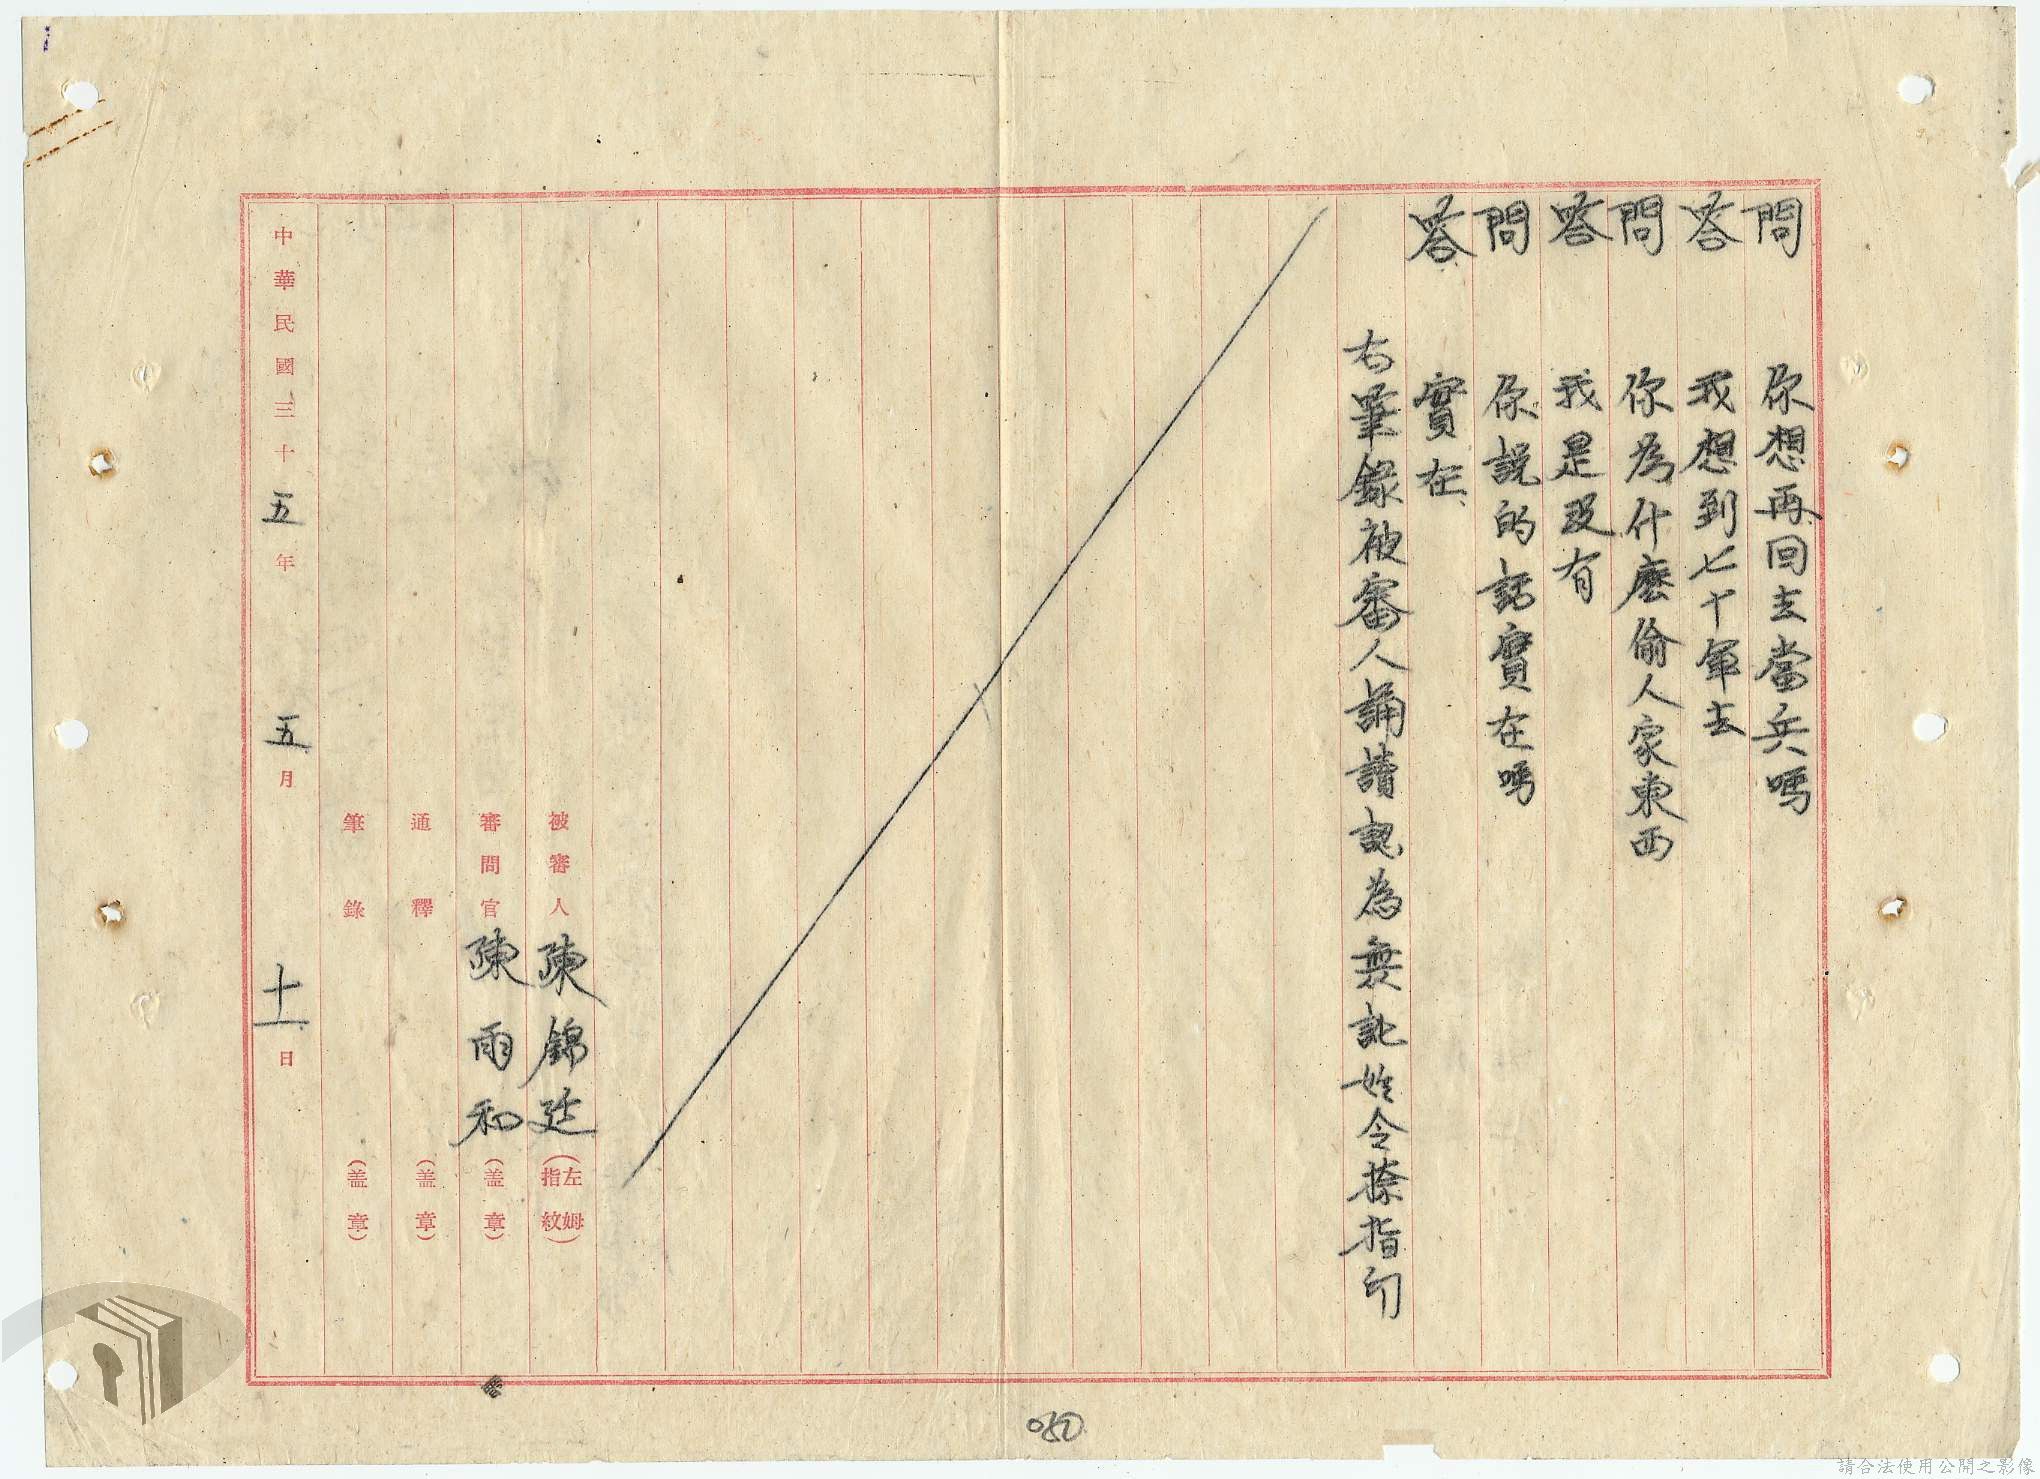 問 你想再回去當兵嗎
答 我想到七十軍去
問 你為什麼偷人家東西
答 我是沒有
問 你說的話實在嗎
答 實在
右筆錄被審人誦讀認為無訛始令捺指印
被審人 陳錦廷 (左姆指紋)
審問官 陳雨和 (盖章)
通釋 (盖章)
筆錄 (盖章)
中華民國三十五年 五月 十一日
050
請合法使用公開之影像